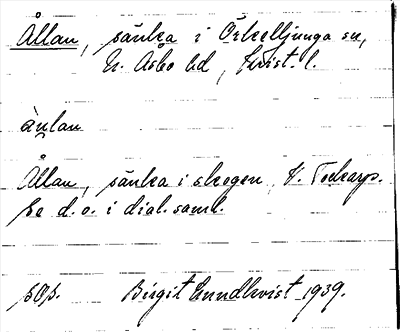 Ållan, sänka i Örkelljunga sn,
N. Åsbo hd, Krist. l.
Ållan, sänka i skogen, V. Tockarp.
Se d. o. i dial. saml.
sOs. Birgit Lundkvist 1939.